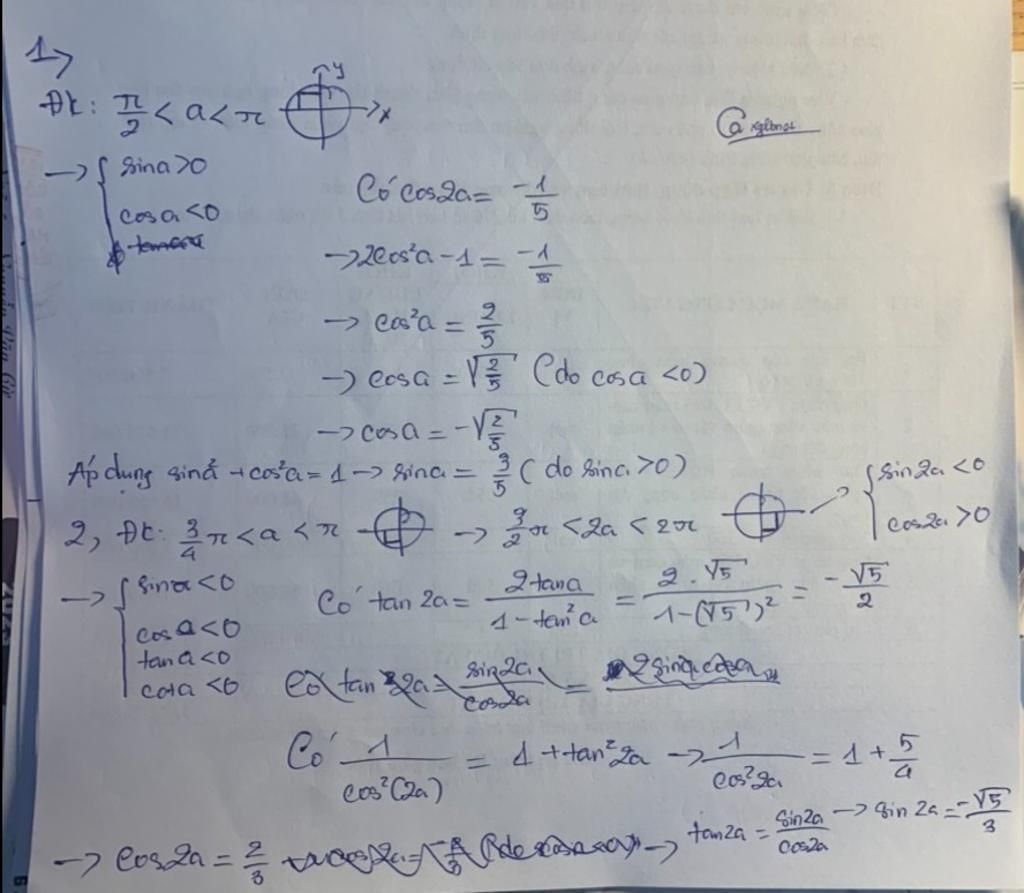 1→
Đk: π/2 < a < π
y
x
@xglbnat
→ { sina>0
cosa<0
Có cos2a = -1/5
→ 2cos²a - 1 = -1/5
→ cos²a = 2/5
→ cosa = √(2/5) (do cosa <0)
→ cosa = -√(2/5)
Áp dụng sin²a + cos²a = 1 → sina = 3/5 (do sina >0)
2, ĐK: 3/4 π < a < π → 3/2 π < 2a < 2π → { sin2a <0
cos2a >0
→ { sina <0
cosa <0
tana <0
cota <0
Có tan 2a = 2tana / (1 - tan²a) = 2.√5 / (1-(√5)²) = -√5/2
Có tan 2a = sin2a / cos2a = 2sina cosa
Có 1/cos²(2a) = 1 + tan²2a → 1/cos²2a = 1 + 5/4
→ cos2a = 2/3 → tan2a = sin2a/cos2a → sin 2a = -√5/3